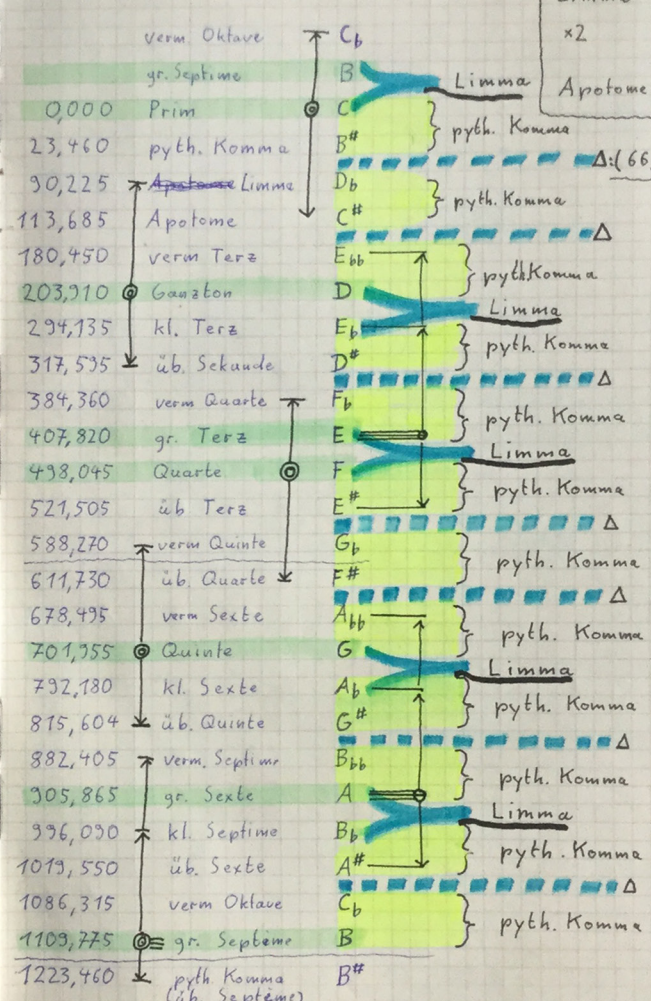 ×2
Apotome
verm. Oktave Cb
gr. Septime B Limma
0,000 Prim C
pyth. Komma
23,460 pyth. Komma B#
Δ:(66
90,225 Limma Db
pyth. Komma
113,685 Apotome C#
Δ
180,450 verm Terz Ebb
pyth Komma
203,910 Ganzton D
Limma
294,135 kl. Terz Eb
pyth. Komma
317,595 üb. Sekunde D#
Δ
384,360 verm Quarte Fb
pyth. Komma
407,820 gr. Terz E
Limma
498,045 Quarte F
pyth. Komma
521,505 üb Terz E#
Δ
588,270 verm Quinte Gb
pyth. Komma
611,730 üb. Quarte F#
Δ
678,495 verm Sexte Abb
pyth. Komma
701,955 Quinte G
Limma
792,180 kl. Sexte Ab
pyth. Komma
815,604 üb. Quinte G#
Δ
882,405 verm. Septime Bbb
pyth. Komma
905,865 gr. Sexte A
Limma
996,090 kl. Septime Bb
pyth. Komma
1019,550 üb. Sexte A#
Δ
1086,315 verm Oktave Cb
pyth. Komma
1109,775 gr. Septime B
1223,460 pyth. Komma B#
(üb. Septime)